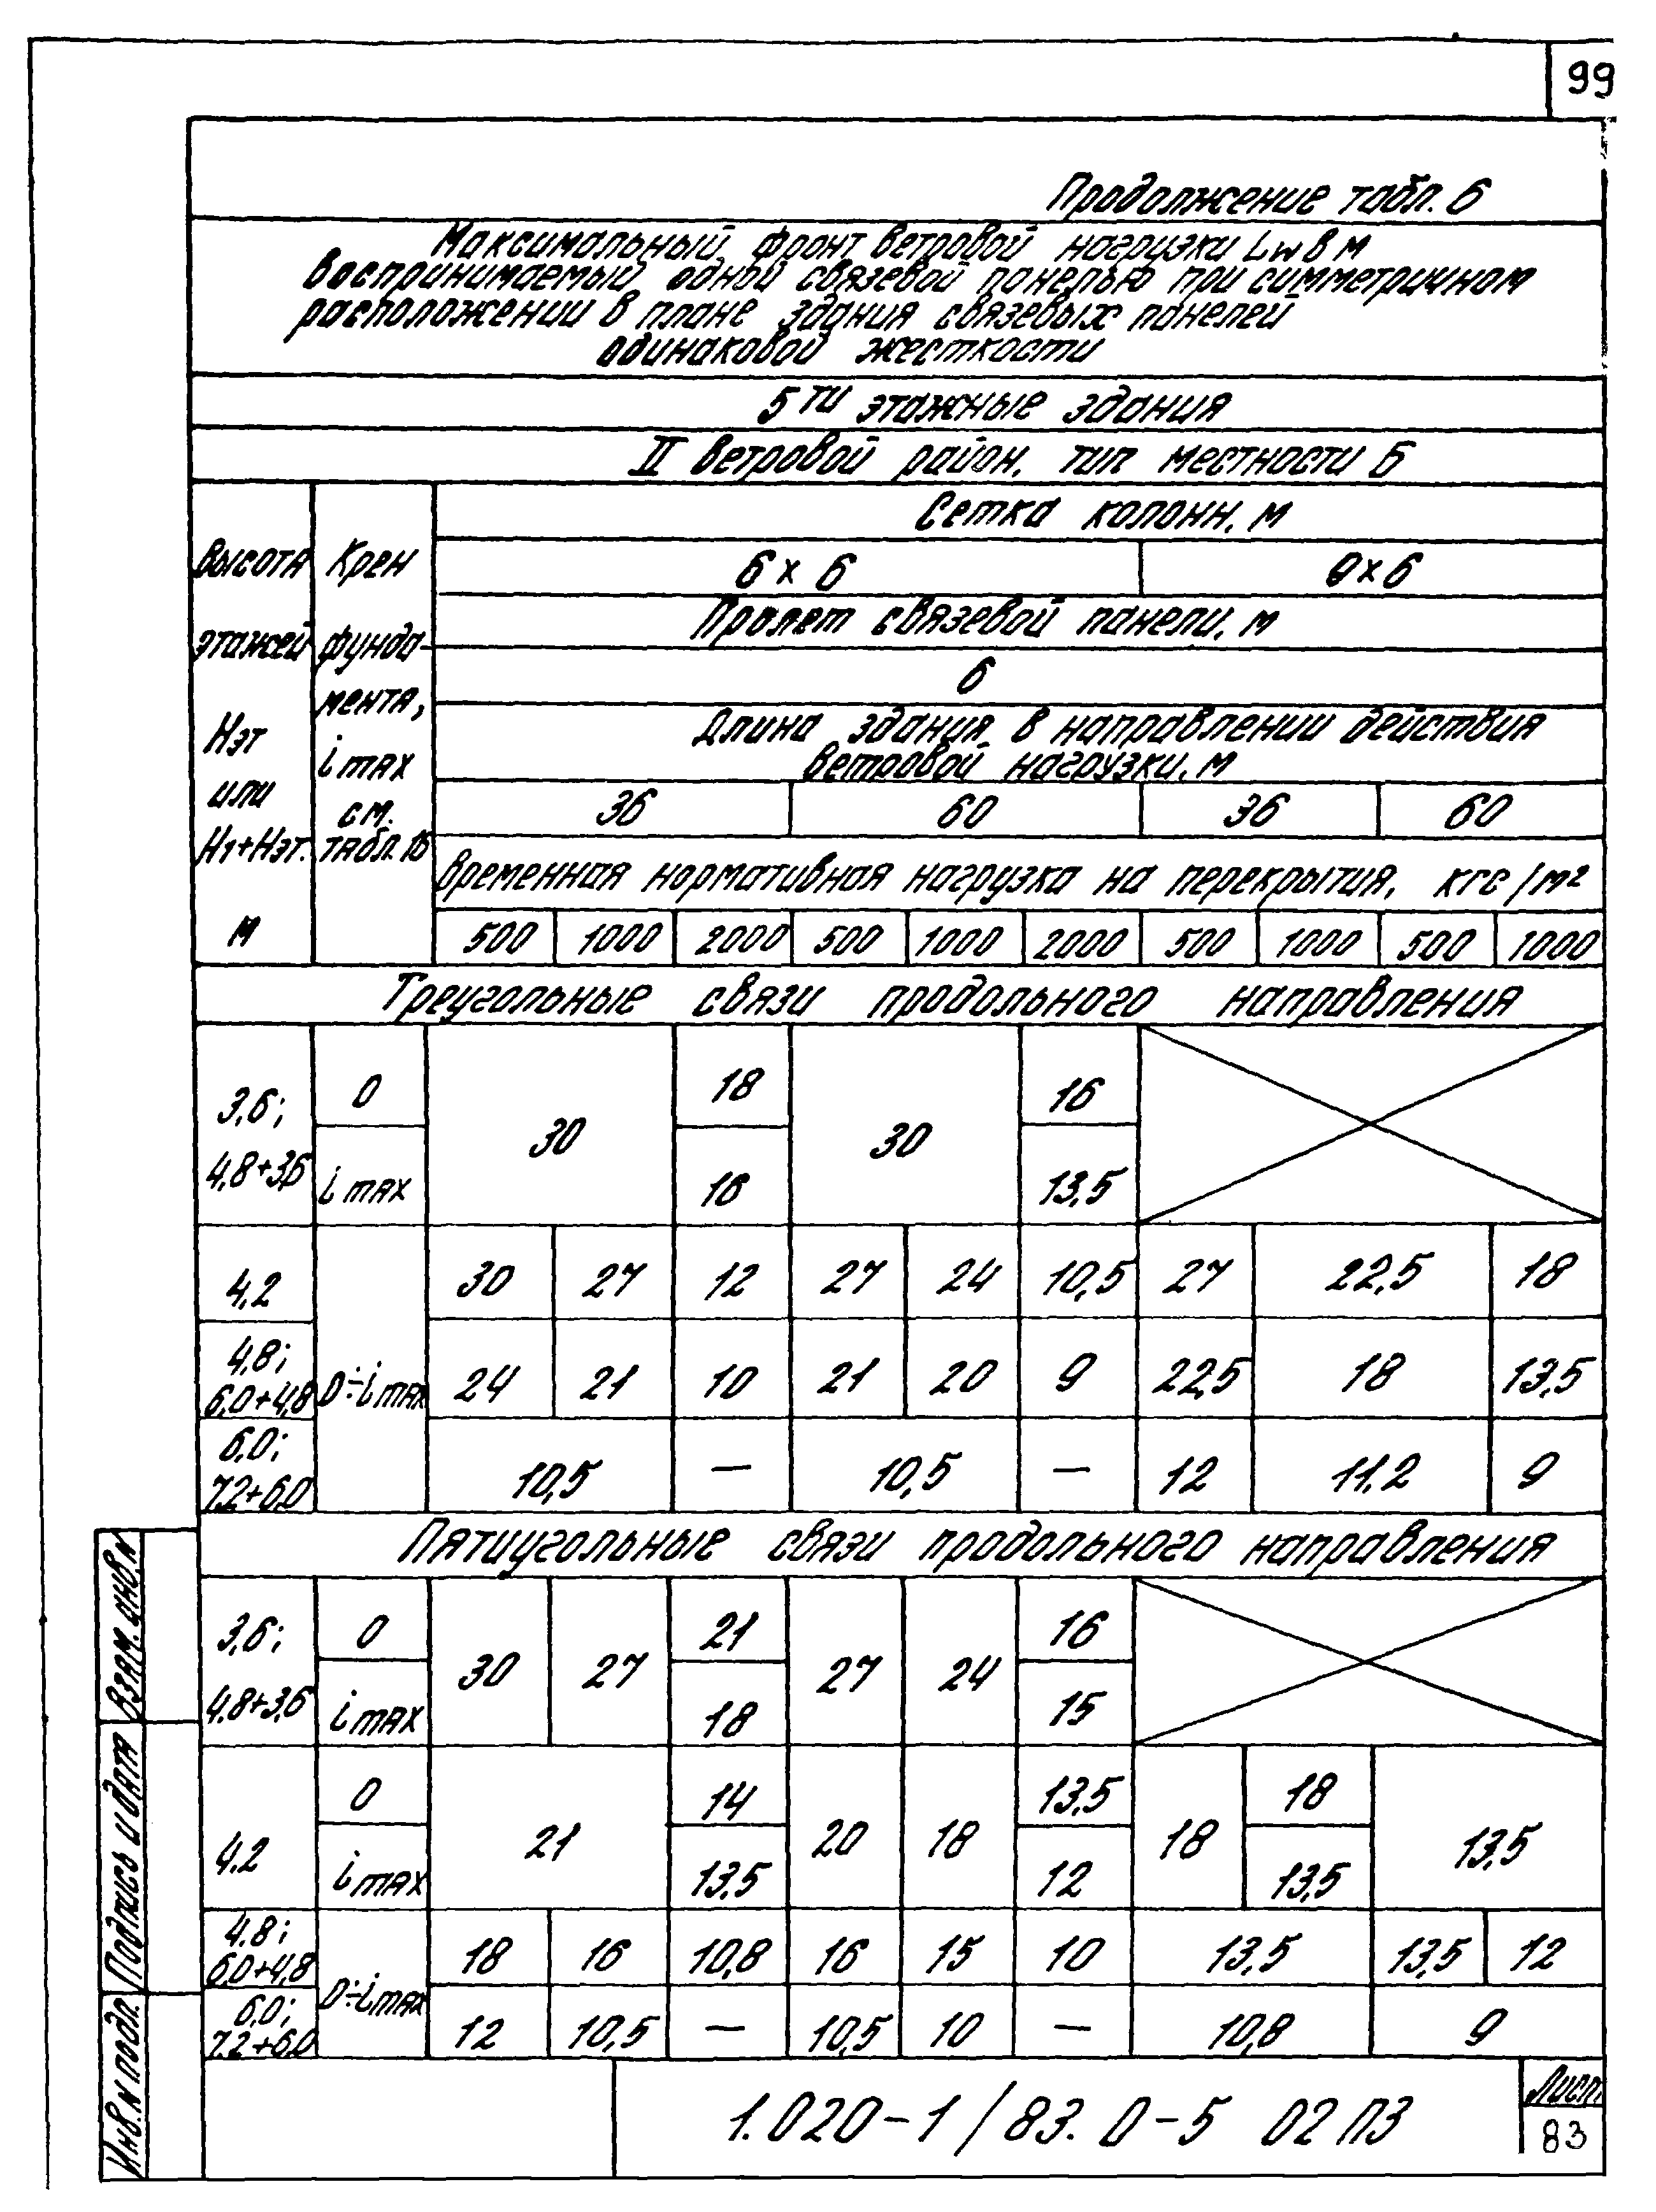 99
Продолжение табл. 6
Максимальный фронт ветровой нагрузки Lw в м
воспринимаемый одной связевой панелью при симметричном
расположении в плане здания связевых панелей
одинаковой жесткости
5ти этажные здания
II ветровой район, тип местности Б
Высота этажей Нэт или Н1+Нэт. м
Крен фунда-мента, i max см. табл. 16
Сетка колонн, м
6 x 6 9 x 6
Пролет связевой панели, м
6
Длина здания в направлении действия
ветровой нагрузки, м
36 60 36 60
Временная нормативная нагрузка на перекрытия, кгс/м²
500 1000 2000 500 1000 2000 500 1000 500 1000
Треугольные связи продольного направления
3,6; 0 18 16
30 30
4,8+3,6 i max 16 13,5
4,2 30 27 12 27 24 10,5 27 22,5 18
4,8;
6,0+4,8 0÷i max 24 21 10 21 20 9 22,5 18 13,5
6,0;
7,2+6,0 10,5 — 10,5 — 12 11,2 9
Пятиугольные связи продольного направления
3,6; 0 21 16
30 27 27 24
4,8+3,6 i max 18 15
0 14 13,5 18
4,2 21 20 18 18 13,5
i max 13,5 12 13,5
4,8;
6,0+4,8 18 16 10,8 16 15 10 13,5 13,5 12
0÷i max
6,0;
7,2+6,0 12 10,5 — 10,5 10 — 10,8 9
Взам. инв. №
Подпись и дата
Инв. № подл.
1.020-1/83. 0-5 02 ПЗ
Лист
83